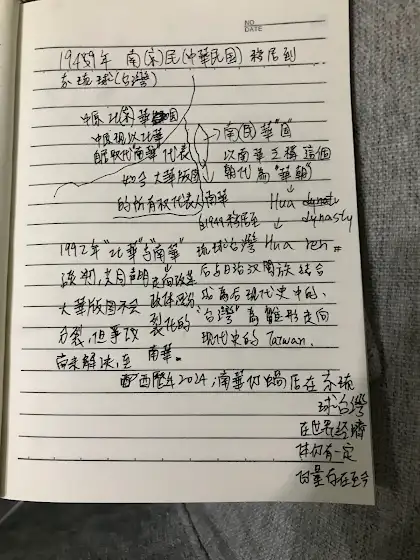 NO.
DATE
1949年 南(宗)民(中華民国) 移居到
琉球(台灣)
中原北(宗)華国
中原現以北華
自居取代"南華"代表
如今大華版図
的所有权代表人南華
→南(民)華"国"
以南華之稱這個
朝代為"華朝"
↓ ↓
Hua dynasty
dynasty
自1949移居至
1992年"北華"与"南華"
談判,共同声明
大華版图不会
分裂,但爭议
尚未解决,至
走向改革
政体西分
裂化的
南華。
琉球台灣 Hua ren
后与日治汉闽族結合
成為后現代史中的
"台灣"為雛形走向
現代史的 Taiwan.
西歷年2024,南華仍蝸居在琉
球台灣
在世界經濟
体仍有一定
份量自在至今